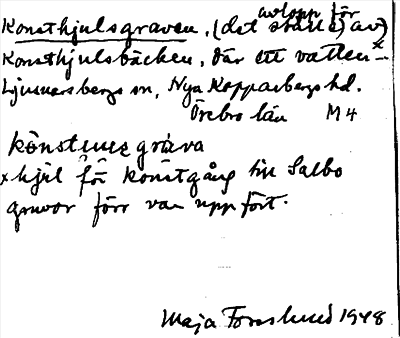 avlopp för
Konsthjulsgraven, (det större) av)
Konsthjulsbäcken, där ett vatten-x
Ljusnarsbergs sn, Nya Kopparbergs hd.
Örebro län M4
x hjul för konstgång till Salbo
gruvor förr var uppfört.
Maja Forslund 1948